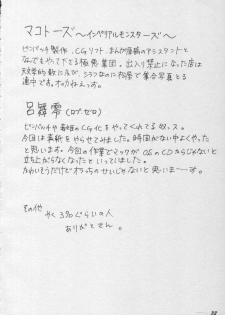 マコトーズ 〜インペリアルモンスターズ〜
ピンパッチ製作、CGソフト、まんが原稿のアシスタントと
なんでもやって下さる極悪集団。出入り禁止になった店は
天文学的数に及び、シラフなのに松屋で集合写真をとる
連中でも。オッカねえっす。
呂舞零 (ロブ・ゼロ)
ピンパッチや表紙のCG化をやってくれてる奴っス。
今回は表紙をやらせてみました。時間がない中よくやったと
思います。今回の作業でマックがOSのCDからじゃないと
立ち上がらなくなったといっていました。
かわいそうだけどオラっちのせいじゃないと思いまーす。
その他 やく3名ぐらいの人
ありがとさん。